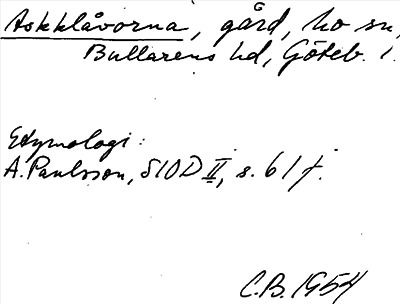 Askklåvorna, gård, ho sn,
Bullarens hd, Göteb. l.
Etymologi:
A. Paulsson, SIOD II, s. 61 f.
C.B. 1954